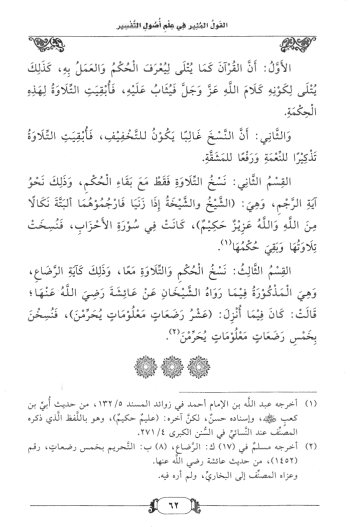 القول المنير في علم أصول التفسير
الأَوَّلُ: أَنَّ القُرْآنَ كَمَا يُتْلَى لِيُعْرَفَ الْحُكْمُ وَالعَمَلُ بِهِ، كَذَلِكَ
يُتْلَى لِكَوْنِهِ كَلَامَ اللَّهِ عَزَّ وَجَلَّ فَيُثَابُ عَلَيْهِ، فَأُبْقِيَتِ التِّلَاوَةُ لِهَذِهِ
الْحِكْمَةِ.
وَالثَّانِي: أَنَّ النَّسْخَ غَالِبًا يَكُونُ لِلتَّخْفِيفِ، فَأُبْقِيَتِ التِّلَاوَةُ
تَذْكِيرًا لِلنِّعْمَةِ وَرَفْعًا لِلمَشَقَّةِ.
القِسْمُ الثَّانِي: نَسْخُ التِّلَاوَةِ فَقَطْ مَعَ بَقَاءِ الْحُكْمِ، وَذَلِكَ نَحْوُ
آيَةِ الرَّجْمِ، وَهِيَ: (الشَّيْخُ وَالشَّيْخَةُ إِذَا زَنَيَا فَارْجُمُوهُمَا الْبَتَّةَ نَكَالًا
مِنَ اللَّهِ وَاللَّهُ عَزِيزٌ حَكِيمٌ)، كَانَتْ فِي سُورَةِ الأَحْزَابِ، فَنُسِخَتْ
تِلَاوَتُهَا وَبَقِيَ حُكْمُهَا(١).
القِسْمُ الثَّالِثُ: نَسْخُ الْحُكْمِ وَالتِّلَاوَةِ مَعًا، وَذَلِكَ كَآيَةِ الرَّضَاعِ،
وَهِيَ الْمَذْكُورَةُ فِيمَا رَوَاهُ الشَّيْخَانِ عَنْ عَائِشَةَ رَضِيَ اللَّهُ عَنْهَا؛
قَالَتْ: كَانَ فِيمَا أُنْزِلَ: (عَشْرُ رَضَعَاتٍ مَعْلُومَاتٍ يُحَرِّمْنَ)، فَنُسِخْنَ
بِخَمْسِ رَضَعَاتٍ مَعْلُومَاتٍ يُحَرِّمْنَ(٢).
(١) أخرجه عبد الله بن الإمام أحمد في زوائد المسند ١٣٢/٥، من حديث أُبيِّ بن
كعبٍ ﷺ، وإسناده حسنٌ، لكنَّ آخره: (عليمٌ حكيمٌ)، وهو باللَّفظ الَّذي ذكره
المصنِّف عند النَّسائيِّ في السُّنن الكبرى ٢٧١/٤.
(٢) أخرجه مسلمٌ في (١٧) ك: الرَّضاع، (٨) ب: التَّحريم بخمس رضعاتٍ، رقم
(١٤٥٢)، من حديث عائشة رضي الله عنها.
وعزاه المصنِّف إلى البخاريِّ، ولم أره فيه.
٦٢